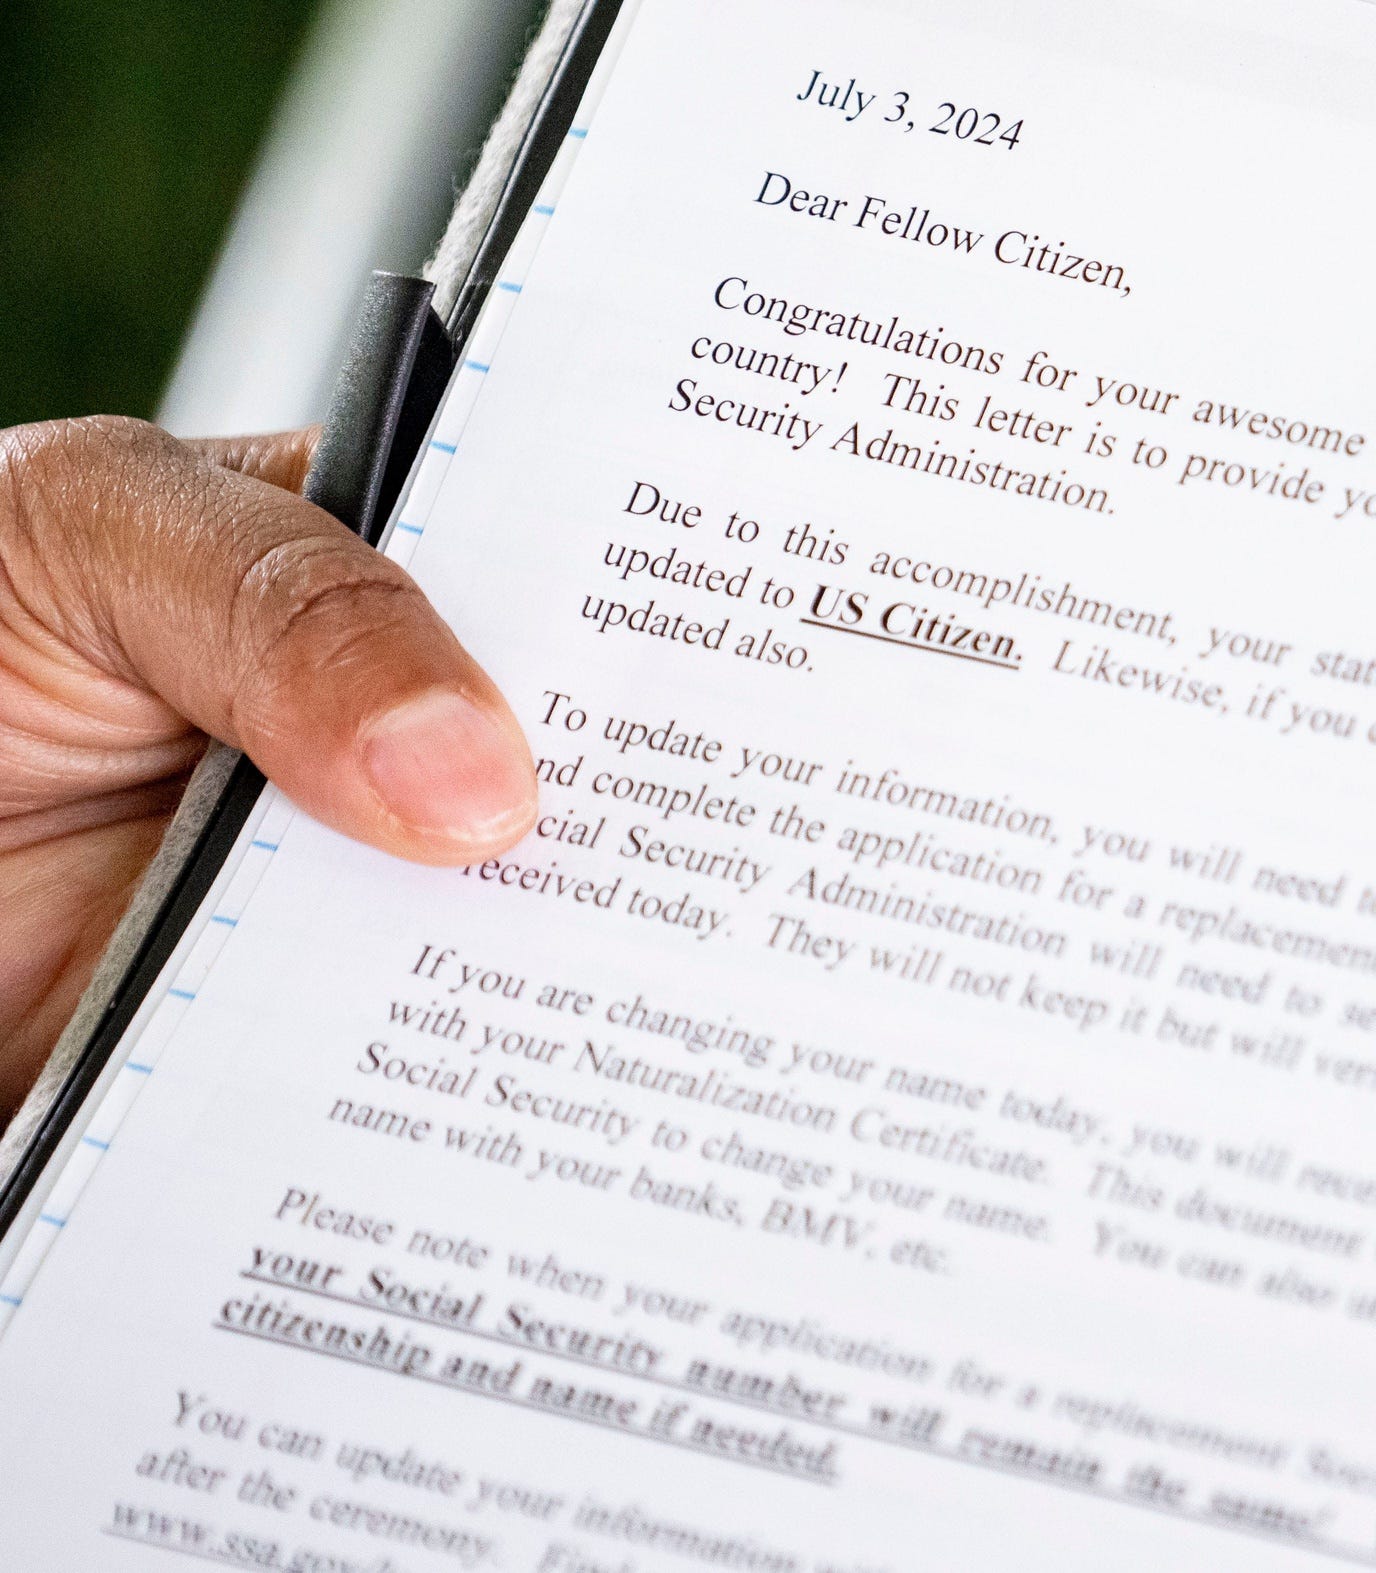 July 3, 2024
Dear Fellow Citizen,
Congratulations for your awesome
country! This letter is to provide yo
Security Administration.
Due to this accomplishment, your stat
updated to US Citizen. Likewise, if you c
updated also.
To update your information, you will need to
nd complete the application for a replacemen
cial Security Administration will need to se
received today. They will not keep it but will veri
If you are changing your name today, you will rece
with your Naturalization Certificate. This document
Social Security to change your name. You can also u
name with your banks, BMV, etc.
Please note when your application for a replacement Soci
your Social Security number will remain the same!
citizenship and name if needed.
You can update your information
after the ceremony.
www.ssa.gov/